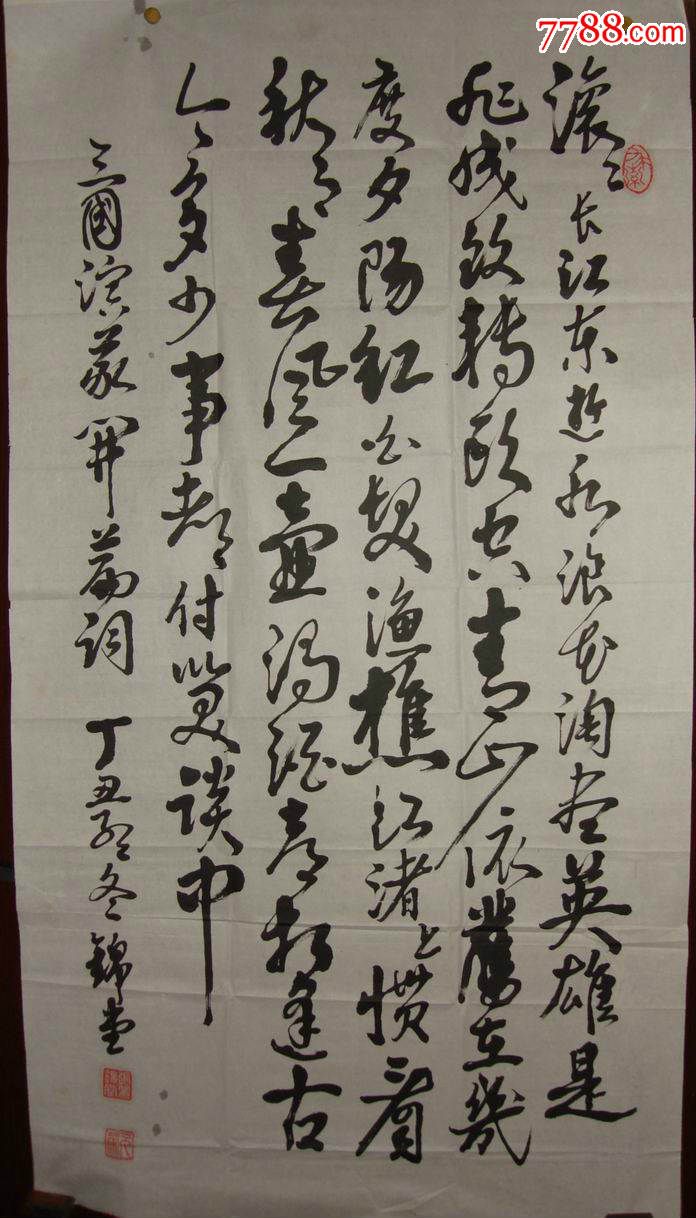 7788.com
滚〻长江东逝水浪花淘尽英雄是
非成败轉頭空青山依舊在幾
度夕陽红白髮渔樵江渚上惯看
秋月春风一壶濁酒喜相逢古
今多少事都付笑谈中
三國演义開篇词 丁丑孟冬 锦堂